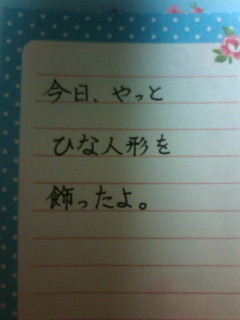 今日、やっと
ひな人形を
飾ったよ。